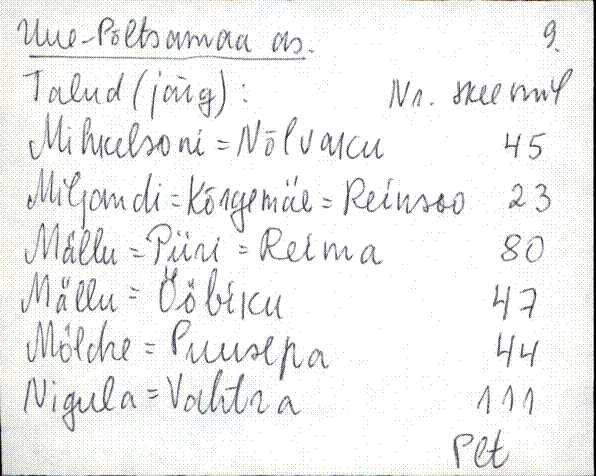 Uue-Põltsamaa as. 9.
Talud (järg): Nr. skeemil
Mihkelsoni = Nõlvaku 45
Miljandi = Kõrgemäe = Reinsoo 23
Mällu = Piiri = Reima 80
Mällu = Ööbiku 47
Mölche = Puusepa 44
Nigula = Vahtra 111
Plt